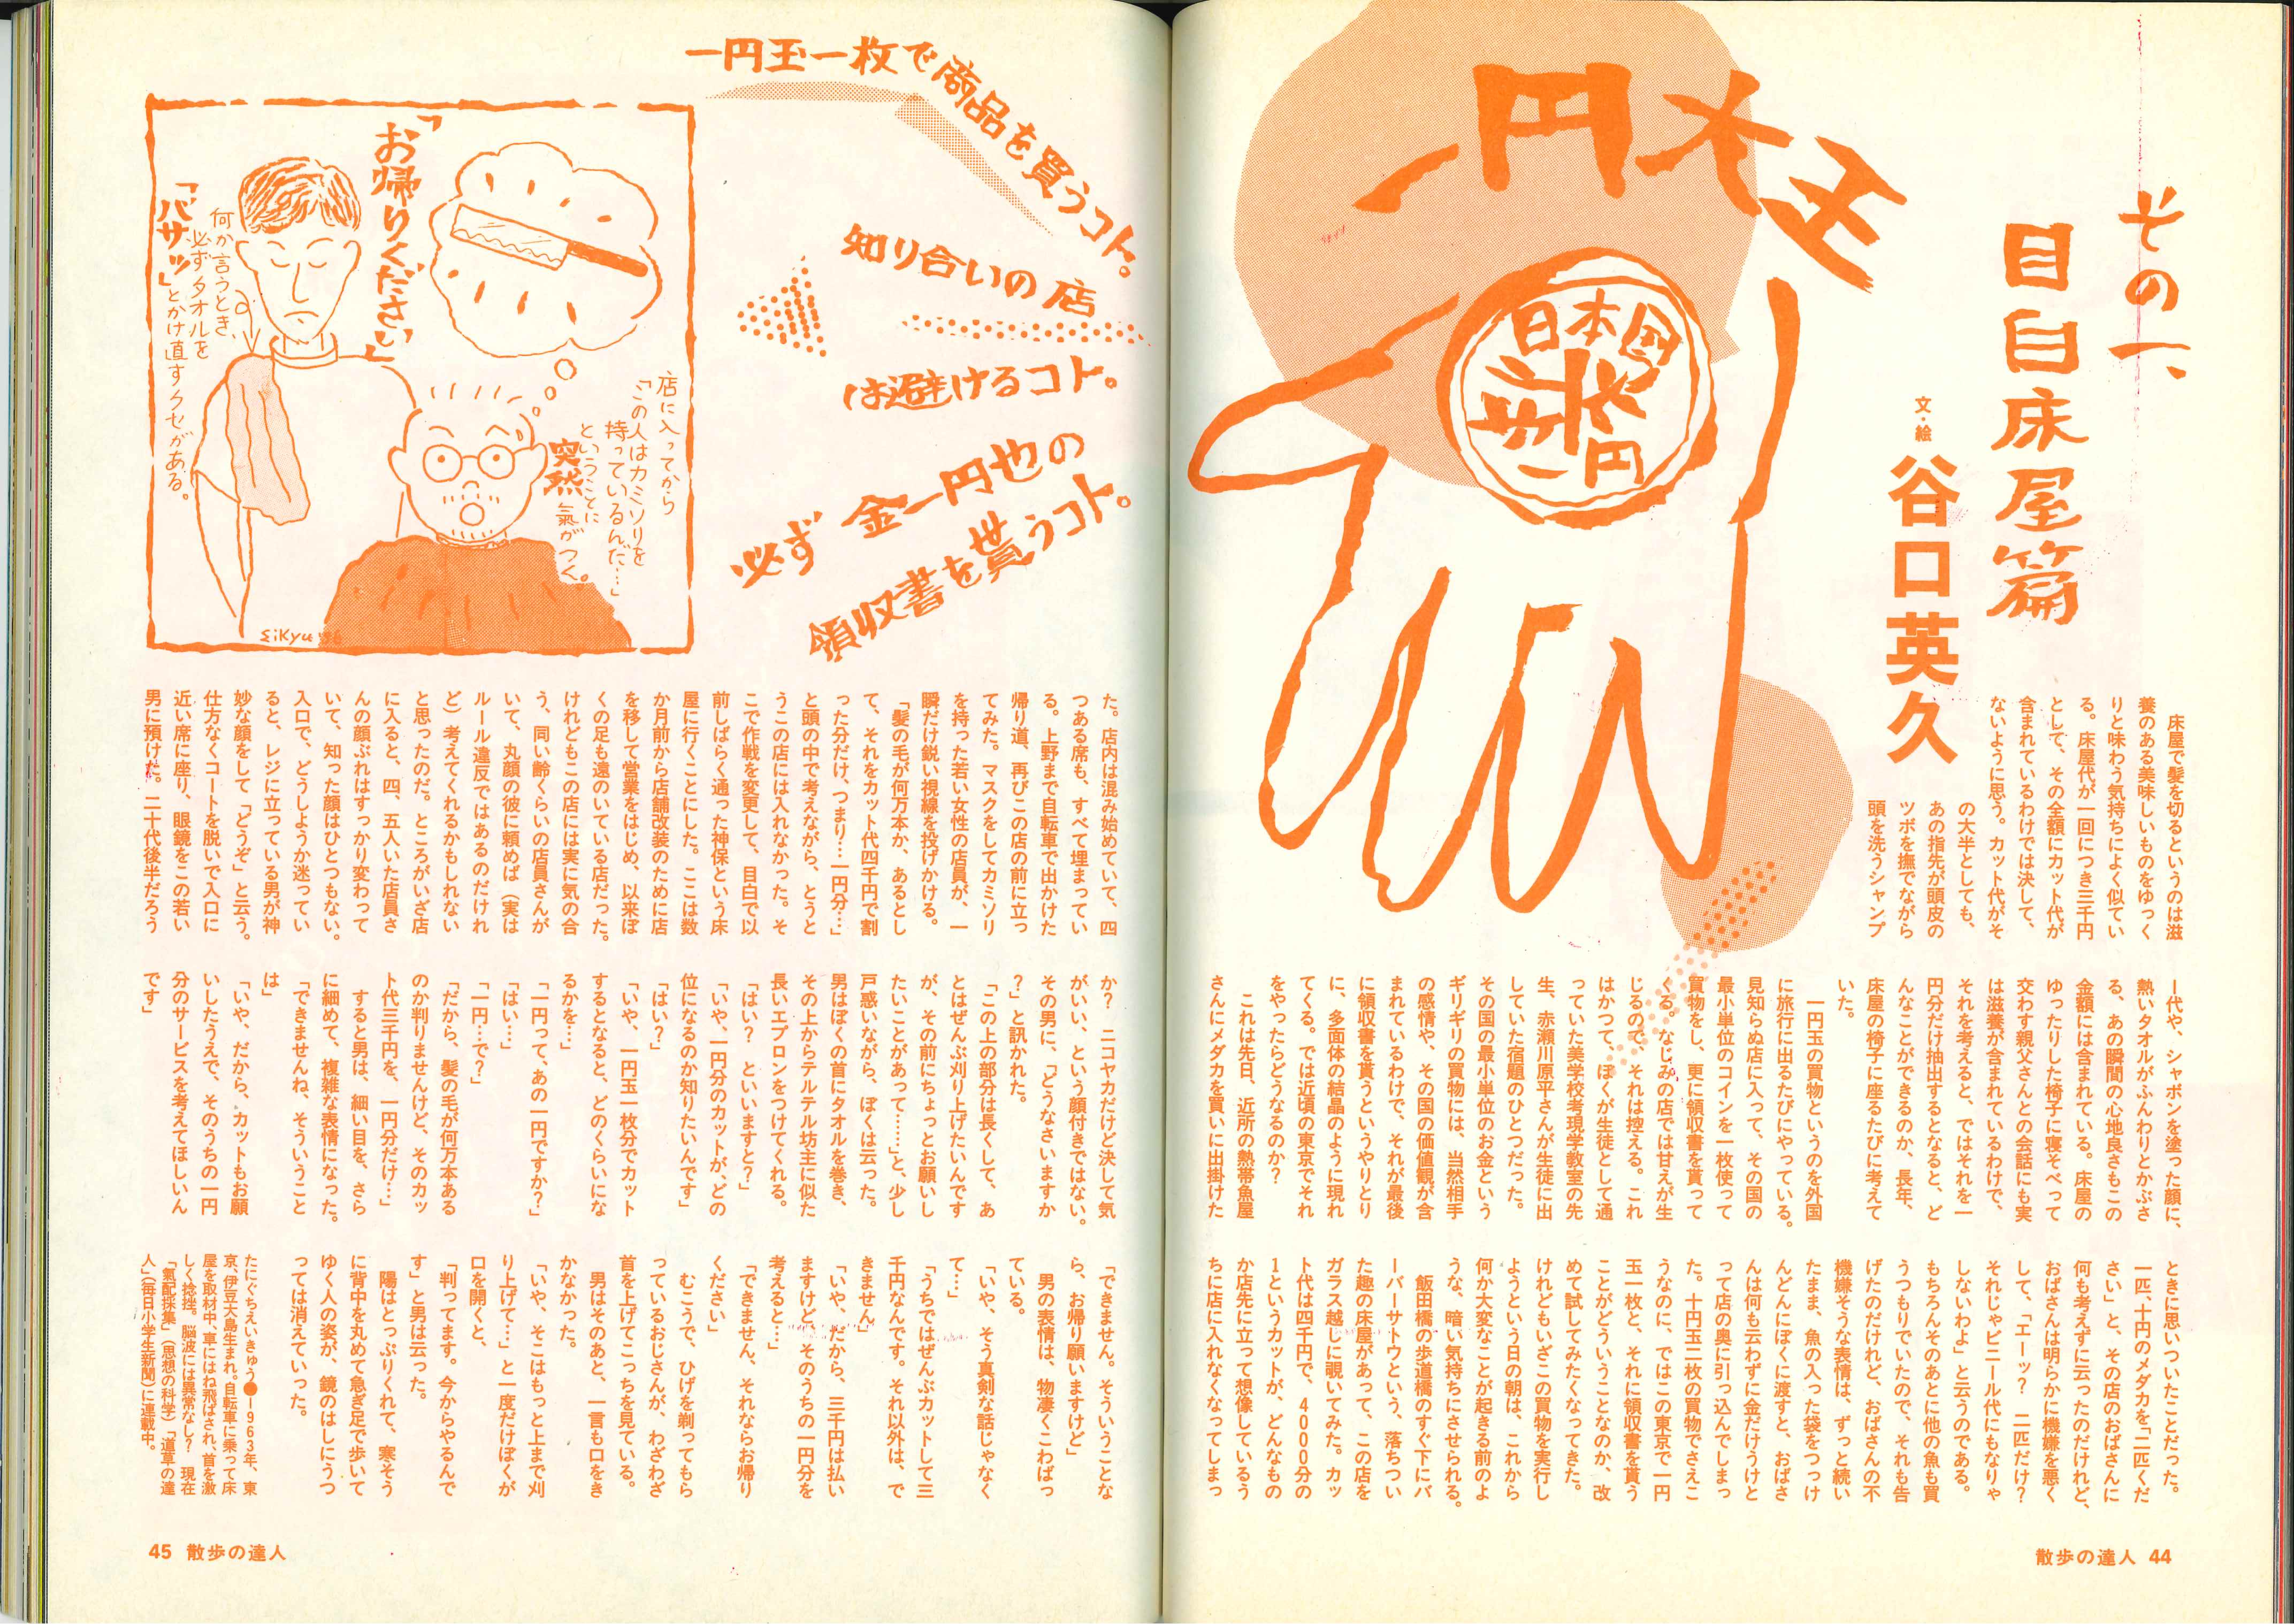 一円大王
その一、
目白床屋篇
文・絵
谷口英久
日本国
一円
床屋で髪を切るというのは滋
養のある美味しいものをゆっく
りと味わう気持ちによく似てい
る。床屋代が一回につき三千円
として、その全額にカット代が
含まれているわけでは決して、
ないように思う。カット代がそ
の大半としても、
あの指先が頭皮の
ツボを撫でながら
頭を洗うシャンプ
ー代や、シャボンを塗った顔に、
熱いタオルがふんわりとかぶさ
る、あの瞬間の心地良さもこの
金額には含まれている。床屋の
ゆったりした椅子に寝そべって
交わす親父さんとの会話にも実
は滋養が含まれているわけで、
それを考えると、ではそれを一
円分だけ抽出するとなると、ど
んなことができるのか、長年、
床屋の椅子に座るたびに考えて
いた。
一円玉の買物というのを外国
に旅行に出るたびにやっている。
見知らぬ店に入って、その国の
最小単位のコインを一枚使って
買物をし、更に領収書を貰って
くる。なじみの店では甘えが生
じるので、それは控える。これ
はかつて、ぼくが生徒として通
っていた美学校考現学教室の先
生、赤瀬川原平さんが生徒に出
していた宿題のひとつだった。
その国の最小単位のお金という
ギリギリの買物には、当然相手
の感情や、その国の価値観が含
まれているわけで、それが最後
に領収書を貰うというやりとり
に、多面体の結晶のように現れ
てくる。では近頃の東京でそれ
をやったらどうなるのか？
これは先日、近所の熱帯魚屋
さんにメダカを買いに出掛けた
ときに思いついたことだった。
一匹、十円のメダカを「二匹くだ
さい」と、その店のおばさんに
何も考えずに云ったのだけれど、
おばさんは明らかに機嫌を悪く
して、「エーッ？　二匹だけ？
それじゃビニール代にもなりゃ
しないわよ」と云うのである。
もちろんそのあとに他の魚も買
うつもりでいたので、それも告
げたのだけれど、おばさんの不
機嫌そうな表情は、ずっと続い
たまま、魚の入った袋をつっけ
んどんにぼくに渡すと、おばさ
んは何も云わずに金だけうけと
って店の奥に引っ込んでしまっ
た。十円玉二枚の買物でさえこ
うなのに、ではこの東京で一円
玉一枚と、それに領収書を貰う
ことがどういうことなのか、改
めて試してみたくなってきた。
けれどもいざこの買物を実行し
ようという日の朝は、これから
何か大変なことが起きる前のよ
うな、暗い気持ちにさせられる。
飯田橋の歩道橋のすぐ下にバ
ーバーサトウという、落ちつい
た趣の床屋があって、この店を
ガラス越しに覗いてみた。カッ
ト代は四千円で、4000分の
1というカットが、どんなもの
か店先に立って想像しているう
ちに店に入れなくなってしまっ
散歩の達人 44
一円玉一枚で商品を買うコト。
知り合いの店
は避けるコト。
必ず金一円也の
領収書を貰うコト。
店に入ってから
「この人はカミソリを
持っているんだ…」
ということに
突然氣がつく。
「お帰りください」
何か言うとき、
必ずタオルを
「バサッ」とかけ直すクセがある。
Eikyu '96
た。店内は混み始めていて、四
つある席も、すべて埋まってい
る。上野まで自転車で出かけた
帰り道、再びこの店の前に立っ
てみた。マスクをしてカミソリ
を持った若い女性の店員が、一
瞬だけ鋭い視線を投げかける。
「髪の毛が何万本か、あるとし
て、それをカット代四千円で割
った分だけ、つまり…一円分…」
と頭の中で考えながら、とうと
うこの店には入れなかった。そ
こで作戦を変更して、目白で以
前しばらく通った神保という床
屋に行くことにした。ここは数
か月前から店舗改装のために店
を移して営業をはじめ、以来ぼ
くの足も遠のいている店だった。
けれどもこの店には実に気の合
う、同い齢くらいの店員さんが
いて、丸顔の彼に頼めば（実は
ルール違反ではあるのだけれ
ど）考えてくれるかもしれない
と思ったのだ。ところがいざ店
に入ると、四、五人いた店員さ
んの顔ぶれはすっかり変わって
いて、知った顔はひとつもない。
入口で、どうしようか迷ってい
ると、レジに立っている男が神
妙な顔をして「どうぞ」と云う。
仕方なくコートを脱いで入口に
近い席に座り、眼鏡をこの若い
男に預けた。二十代後半だろう
か？　ニコヤカだけど決して気
がいい、という顔付きではない。
その男に、「どうなさいますか
？」と訊かれた。
「この上の部分は長くして、あ
とはぜんぶ刈り上げたいんです
が、その前にちょっとお願いし
たいことがあって……」と、少し
戸惑いながら、ぼくは云った。
男はぼくの首にタオルを巻き、
その上からテルテル坊主に似た
長いエプロンをつけてくれる。
「はい？　といいますと？」
「いや、一円分のカットが、どの
位になるのか知りたいんです」
「はい？」
「いや、一円玉一枚分でカット
するとなると、どのくらいにな
るかを…」
「一円って、あの一円ですか？」
「はい…」
「一円…で？」
「だから、髪の毛が何万本ある
のか判りませんけど、そのカッ
ト代三千円を、一円分だけ…」
すると男は、細い目を、さら
に細めて、複雑な表情になった。
「できませんね、そういうこと
は」
「いや、だから、カットもお願
いしたうえで、そのうちの一円
分のサービスを考えてほしいん
です」
「できません。そういうことな
ら、お帰り願いますけど」
男の表情は、物凄くこわばっ
ている。
「いや、そう真剣な話じゃなく
て…」
「うちではぜんぶカットして三
千円なんです。それ以外は、で
きません」
「いや、だから、三千円は払い
ますけど、そのうちの一円分を
考えると…」
「できません、それならお帰り
ください」
むこうで、ひげを剃ってもら
っているおじさんが、わざわざ
首を上げてこっちを見ている。
男はそのあと、一言も口をき
かなかった。
「いや、そこはもっと上まで刈
り上げて…」と一度だけぼくが
口を開くと、
「判ってます。今からやるんで
す」と男は云った。
陽はとっぷりくれて、寒そう
に背中を丸めて急ぎ足で歩いて
ゆく人の姿が、鏡のはしにうつ
っては消えていった。
たにぐちえいきゅう●1963年、東
京、伊豆大島生まれ。自転車に乗って床
屋を取材中、車にはね飛ばされ、首を激
しく捻挫。脳波には異常なし？　現在
「氣配採集」（思想の科学）「道草の達
人」（毎日小学生新聞）に連載中。
45 散歩の達人